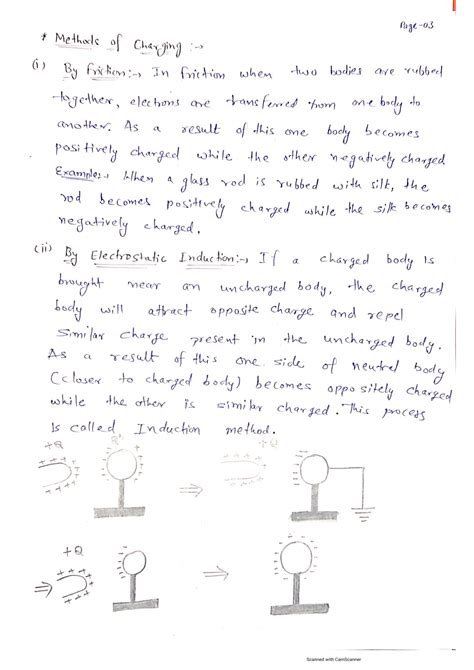 Page-03
* Methods of Charging :→
(i) By friction:→ In friction when two bodies are rubbed
together, electrons are transferred from one body to
another. As a result of this one body becomes
positively charged while the other negatively charged
Example:→ When a glass rod is rubbed with silk, the
rod becomes positively charged while the silk becomes
negatively charged.
(ii) By Electrostatic Induction:→ If a charged body is
brought near an uncharged body, the charged
body will attract opposite charge and repel
similar charge present in the uncharged body.
As a result of this one side of neutral body
(closer to charged body) becomes oppositely charged
while the other is similar charged. This process
is called Induction method.
+Q
+Q
+Q
Scanned with CamScanner